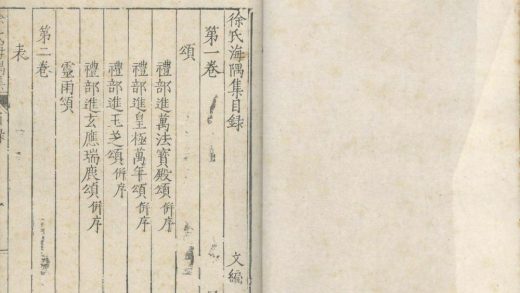 徐氏海隅集目録 文編
第一卷
頌
禮部進萬法寶殿頌併序
禮部進皇極萬年頌併序
禮部進玉芝頌併序
禮部進玄應瑞鹿頌併序
靈雨頌
第二卷
表